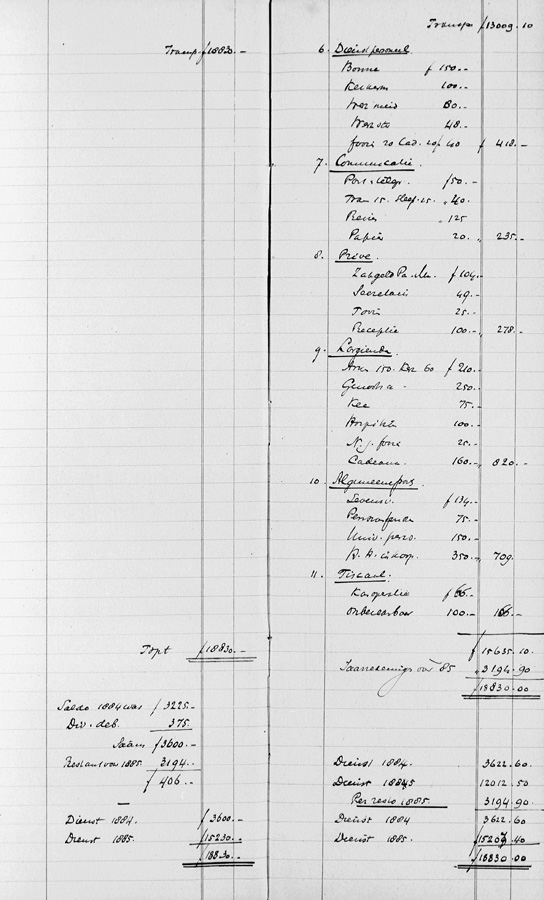 Transp. f 18830.-
Topt f 18830.-
Saldo 1884 was f 3225.-
Div. deb. 375.
Saam f 3600.-
Restant voor 1885 3194.-
f 406.-
Dienst 1884. f 3600.-
Dienst 1885. f 15230.-
18830.-
Transp. f 13009.10
6. Dienstpersoneel
Bonne f 150.-
Keukenm 100.-
Werkmeid 80.-
48.-
fooien 20 Cad. 20 f 40 f 418.-
7. Communicatie.
Port. telegr. f 50.-
Tram 15. Sleep. 25. „ 40.-
Reizen „ 125
Papier 20. „ 235.-
8. Privé.
Zakgeld Pa. M. f 104.-
Secretaris 49.-
25.-
Receptie 100.- „ 278.-
9. Largienda.
Arm 150. Kerk 60 f 210.-
Genootsch. - 250.-
75.-
Hospitia 100.-
N.j. fooi 25.-
Cadeaux. 160.- „ 820.-
10. Algemeenefonds
Levensv. f 134.-
Pensioenfondsen 75.-
Univ. pens. 150.-
350.- „ 709.
11. Fiscaal.
f 66.-
onberekenbaar 100.- 166.-
f 15635.10
Saamrekening over 85 „ 3194.90
f 18830.00
Dienst 1884. 3622.60
Dienst 1885 12012.50
Per resto 1885. 3194.90
Dienst 1884 3622.60
Dienst 1885. f 15207.40
f 18830.00